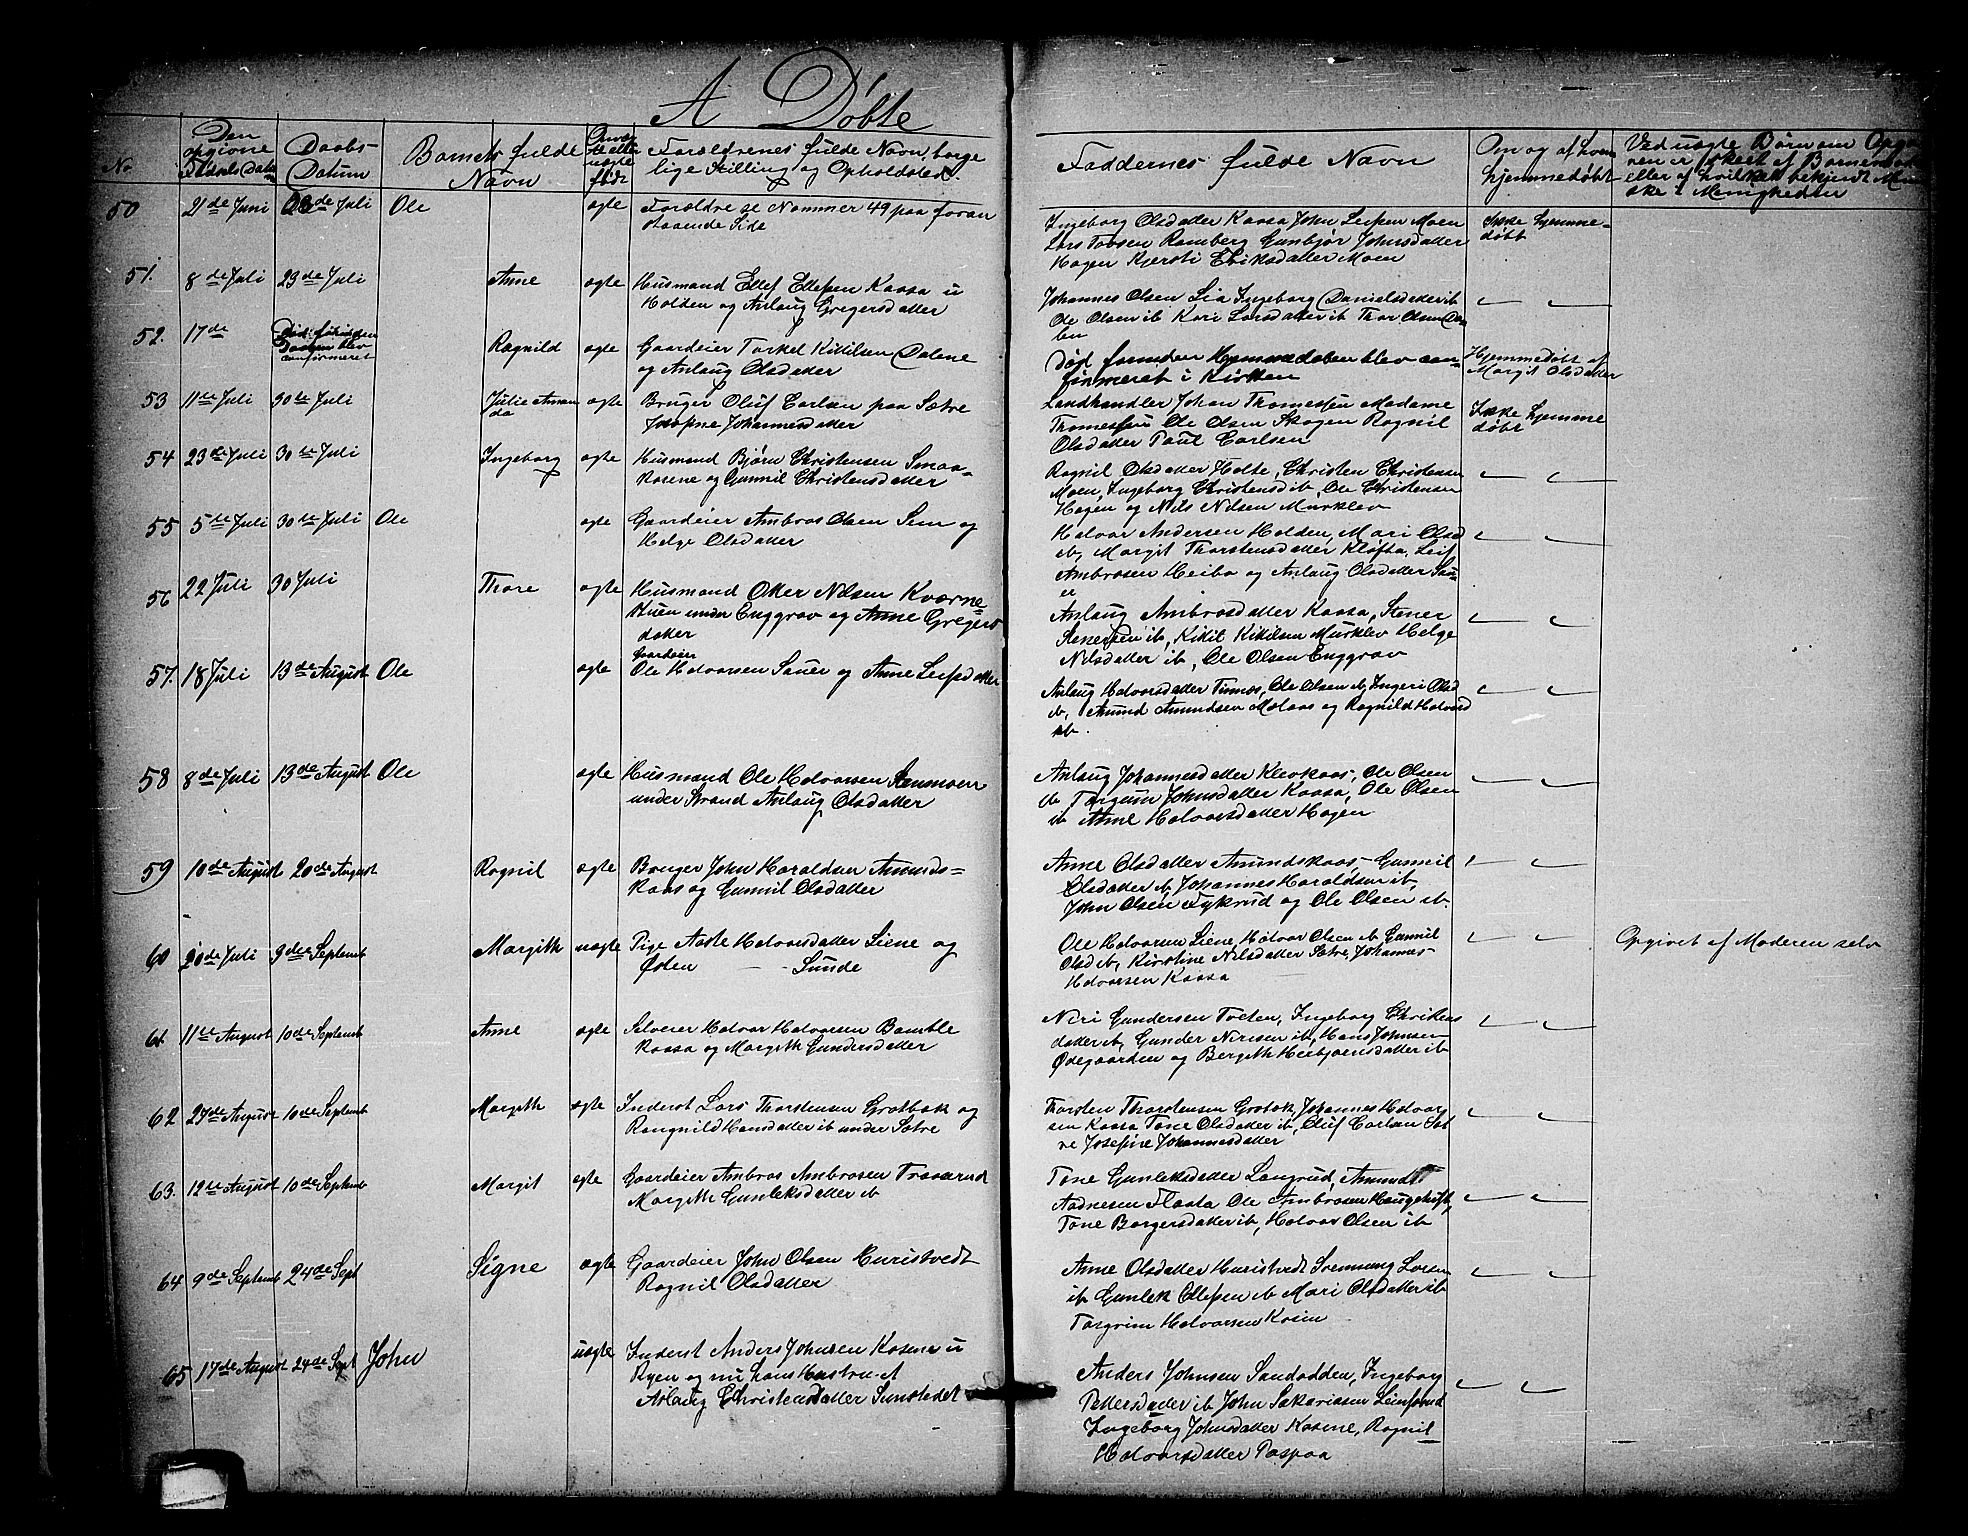 A Døbte
No
Den opgivne Fødsels Datum
Daabs-Datum
Barnets fulde Navn
Om ægte eller uægte født
Forældrenes fulde Navn, borgelige Stilling og Opholdsted.
Faddernes fulde Navn
Om og af hvem hjemmedøbt
Ved uægte Børn om Opgaven er skeet af Barnemoder eller af hvilket bekjendt Men
ske i Menigheden
50 21de Juni 23de Juli Ole ægte Forældre se Nommer 49 paa foran
staaende Side
Ingeborg Olsdatter Kaasa John Leifsen Moen
Lars Tovsen Ramberg Gunbjør Johnsdatter
Hagen Kjersti Eriksdatter Moen
Ikke hjemme-
døbt
51. 8de Juli 23de Juli Anne ægte Husmand Ellef Ellefsen Kaasa u
Holden og Anlaug Gregersdatter
Johannes Olsen Lia Ingeborg Danielsdatter ib
Ole Olsen ib Kari Larsdatter ib Thor Olsen Da-
len
52. 17de Død førinden
Daaben blev
confirmeret
Ragnild ægte Gaardeier Torkel Kittilsen Dalene
og Anlaug Olsdatter
Død forinden Hjemmedaaben blev con-
firmeret i Kirken
Hjemmedøbt af
Margit Olsdatter
53 11te Juli 30te Juli Julie Aman
da ægte Bruger Oluf Carlsen paa Sætre
Josefine Johannesdatter
Landhandler Johan Thomessen Madame
Thomessen Ole Olsen Skogen Ragnil
Olsdatter Paul Carlsen
Ikke hjemme
døbt
54 23de Juli 30te Juli Ingeborg ægte Husmand Bjørn Christensen Smaa-
kasene og Gunnil Christensdatter
Ragnil Olsdatter Holte, Christen Christensen
Moen, Ingeborg Christensd ib, Ole Christensen
Hagen og Nils Nilsen Murklev
55 5te Juli 30te Juli Ole ægte Gaardeier Ambros Olsen Sem og
Helge Olsdatter
Halvor Andersen Holden, Mari Olsd
ib, Margit Thorstensdatter Kløfta, Leif
Ambrosen Heibø og Anlaug Olsdatter Sau-
er
56 22 Juli 30 Juli Thore ægte Husmand Otter Nilsen Kværne-
stuen under Enggrav og Anne Gregers
datter
Anlaug Ambrosdatter Kaasa, Stener
Stenersen ib, Kittil Kittilsen Murklev Helge
Nilsdatter ib, Ole Olsen Enggrav
57. 18 Juli 13de August Ole ægte Gaardeier
Ole Halvorsen Sauer og Anne Leifsdatter
Anlaug Halvorsdatter Tinnes, Ole Olsen ib, Ingeri Olsd
ib, Amund Amundsen Moland og Ragnild Halvorsd
ib.
58 8de Juli 13de August Ole ægte Husmand Ole Halvorsen Stenmoen
under Strand Anlaug Olsdatter
Anlaug Johannesdatter Klevkaas, Ole Olsen
ib, Torgun Johnsdatter Kaasa, Ole Olsen
ib Anne Halvorsdatter Hagen
59 10de August 20de August Ragnil ægte Bruger John Haraldsen Amunds-
kaas og Gunnil Olsdatter
Anne Olsdatter Amundskaas- Gunnil
Olsdatter ib, Johannes Haraldsen ib,
John Olsen Fykrud og Ole Olsen ib.
60 20de Juli 9de September Margith uægte Pige Aaste Halvorsdatter Siene og
Østen - - Sunde
Ole Halvorsen Siene, Halvor Olsen ib Gunnil
Olsd ib, Kirstine Nilsdatter Sætre, Johannes
Halvorsen Kaasa
Opgivet af Moderen selv
61. 11te August 10de Septemb Anne ægte Selveier Halvor Halvorsen Bamble
Kaasa og Margith Gundersdatter
Niri Gundersen Tveten, Ingeborg Christens
datter ib, Gunder Nirisen ib, Hans Johnsen
Ødegaarden og Bergith Heibjønsdatter ib
62 27de August 10de Septemb Margith ægte Inderst Lars Thorstensen Grotbæk og
Rangnild Hansdatter ib under Sætre
Thorsten Thorstensen Grobæk, Johannes Halvor
sen Kaasa Tone Olsdatter ib, Oluf Carlsen Sæt
re Josefine Johannesdatter
63. 12te August 10de Septemb Margit ægte Gaardeier Ambros Ambrosen Traaerud
Margith Gunleksdatter ib
Tone Gunleksdatter Langrud, Amund
Aadnesen Flaata Ole Ambrosen Haugetuft,
Tone Borgersdatter ib, Halvor Olsen ib
64 9de Septemb 24de Sept Signe ægte Gaardeier John Olsen Huristvedt
Ragnil Olsdatter
Anne Olsdatter Huristvedt Svennung Larsen
ib Gunlek Ellefsen ib Mari Olsdatter ib
Torgrim Halvorsen Kosin
65 17de August 24de Sept John uægte Inderst Anders Johnsen Kasene u
Ryen og nu hans Hustru
Aslaug Christensdatter Sunstedet
Anders Johnsen Sandodden, Ingeborg
Pettersdatter ib John Sakariasen Leinsund
Ingeborg Johnsdatter Kasene, Ragnil
Halvorsdatter Paspaa